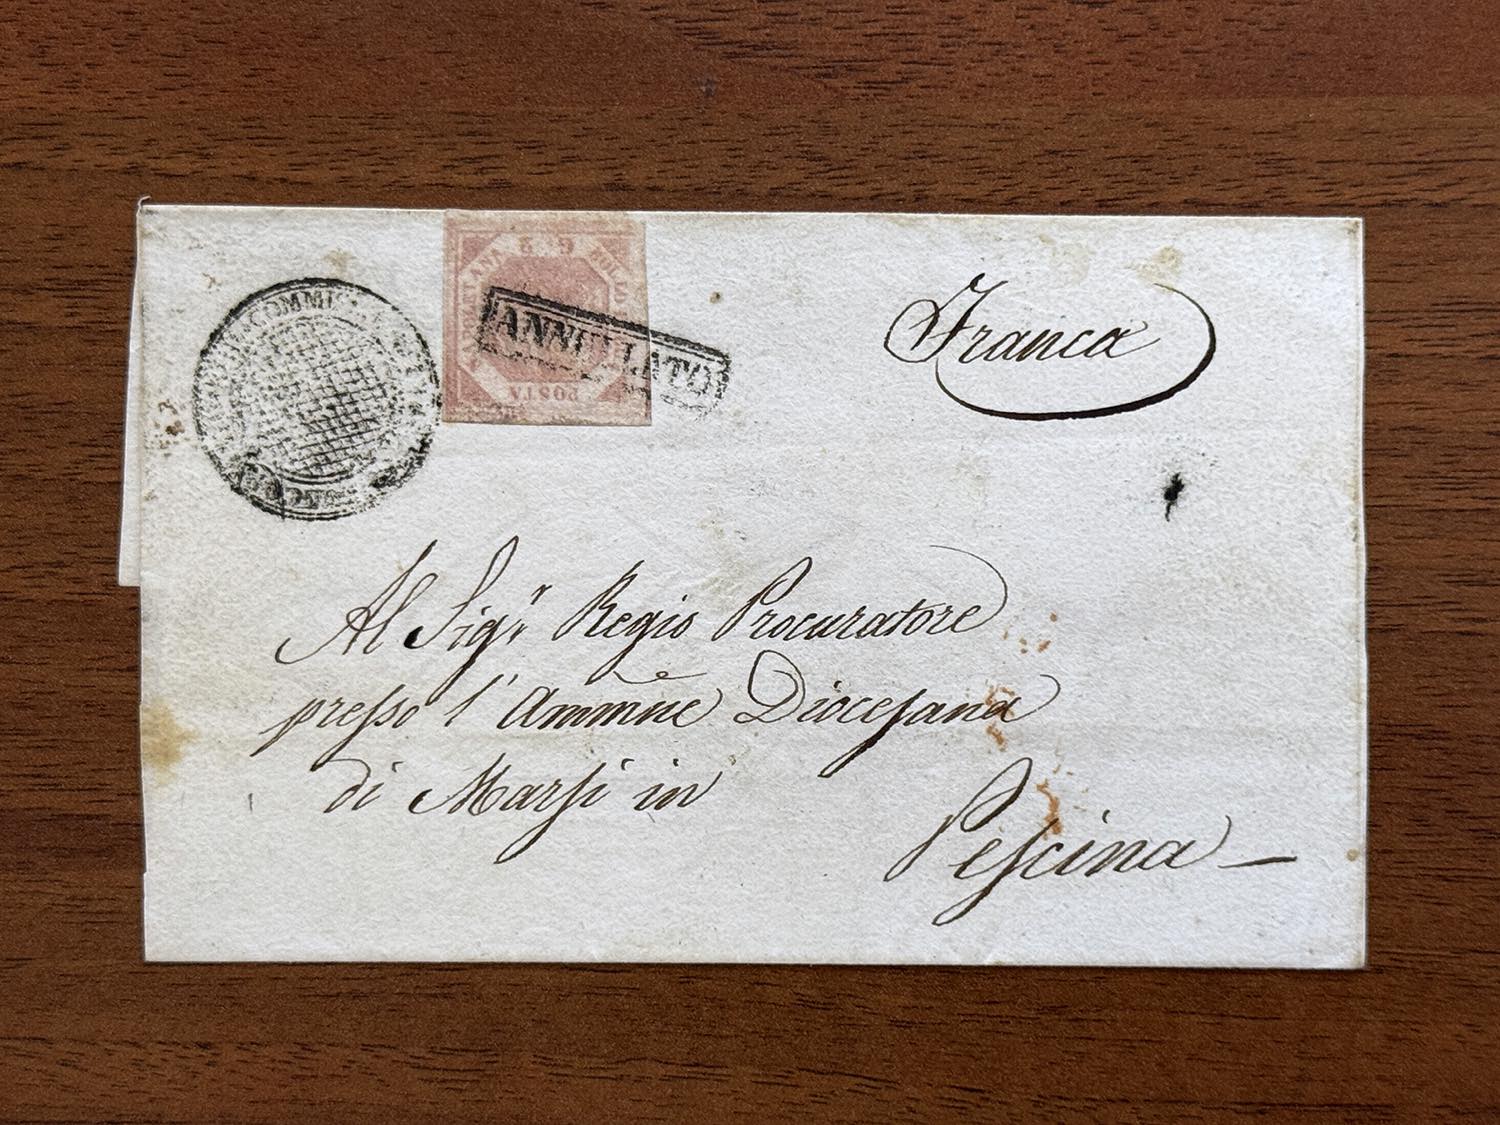 COMMIS
G 2
BOLLO
POSTA
ANNULLATO
Franca
Al Sigr Regio Procuratore
presso l' Ammne Diocesana
di Marsi in
Pescina